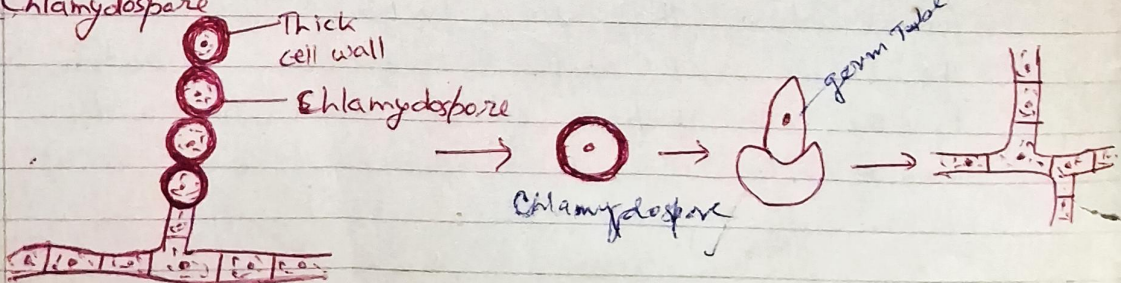 Chlamydospore
Thick
cell wall
Chlamydospore
Chlamydospore
germ Tube